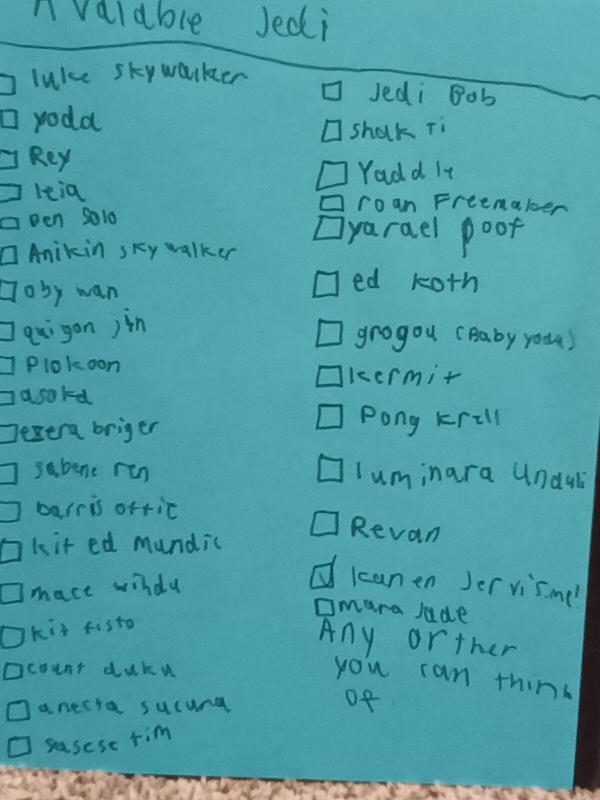 Available Jedi
luke skywalker
yoda
Rey
leia
Ben Solo
Anikin skywalker
oby wan
quigon jin
Plokoon
asoka
ezera briger
sabene ren
barris offic
kit ed Mundic
mace windu
kit fisto
count duku
anecta sucura
sasese tim
Jedi Bob
shak Ti
Yaddle
roan Freemaker
yarael poof
ed koth
grogou (Baby yoda)
kermit
Pong Krell
luminara Unduli
Revan
kanen Jervis.me!
mara Jade
Any orther
you can think
of